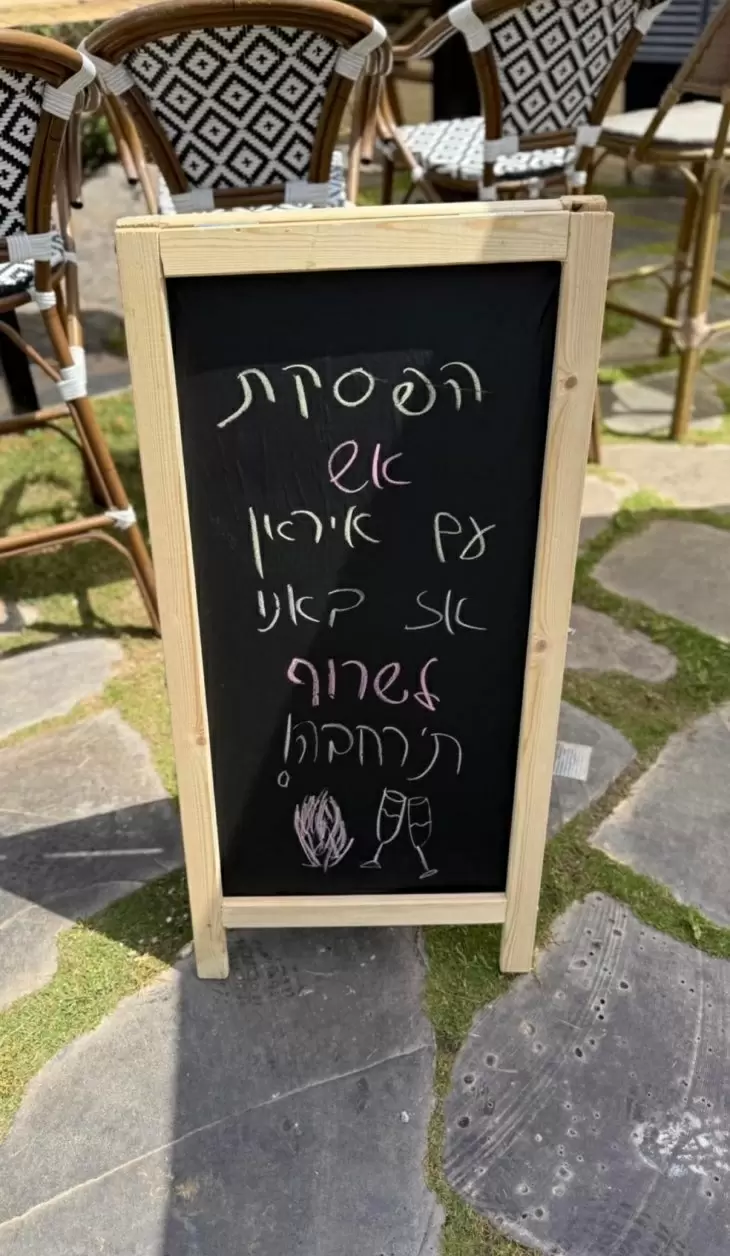 הפסקת
אש
עם איראן
אז באנו
לשרוף
ת׳רחבה!